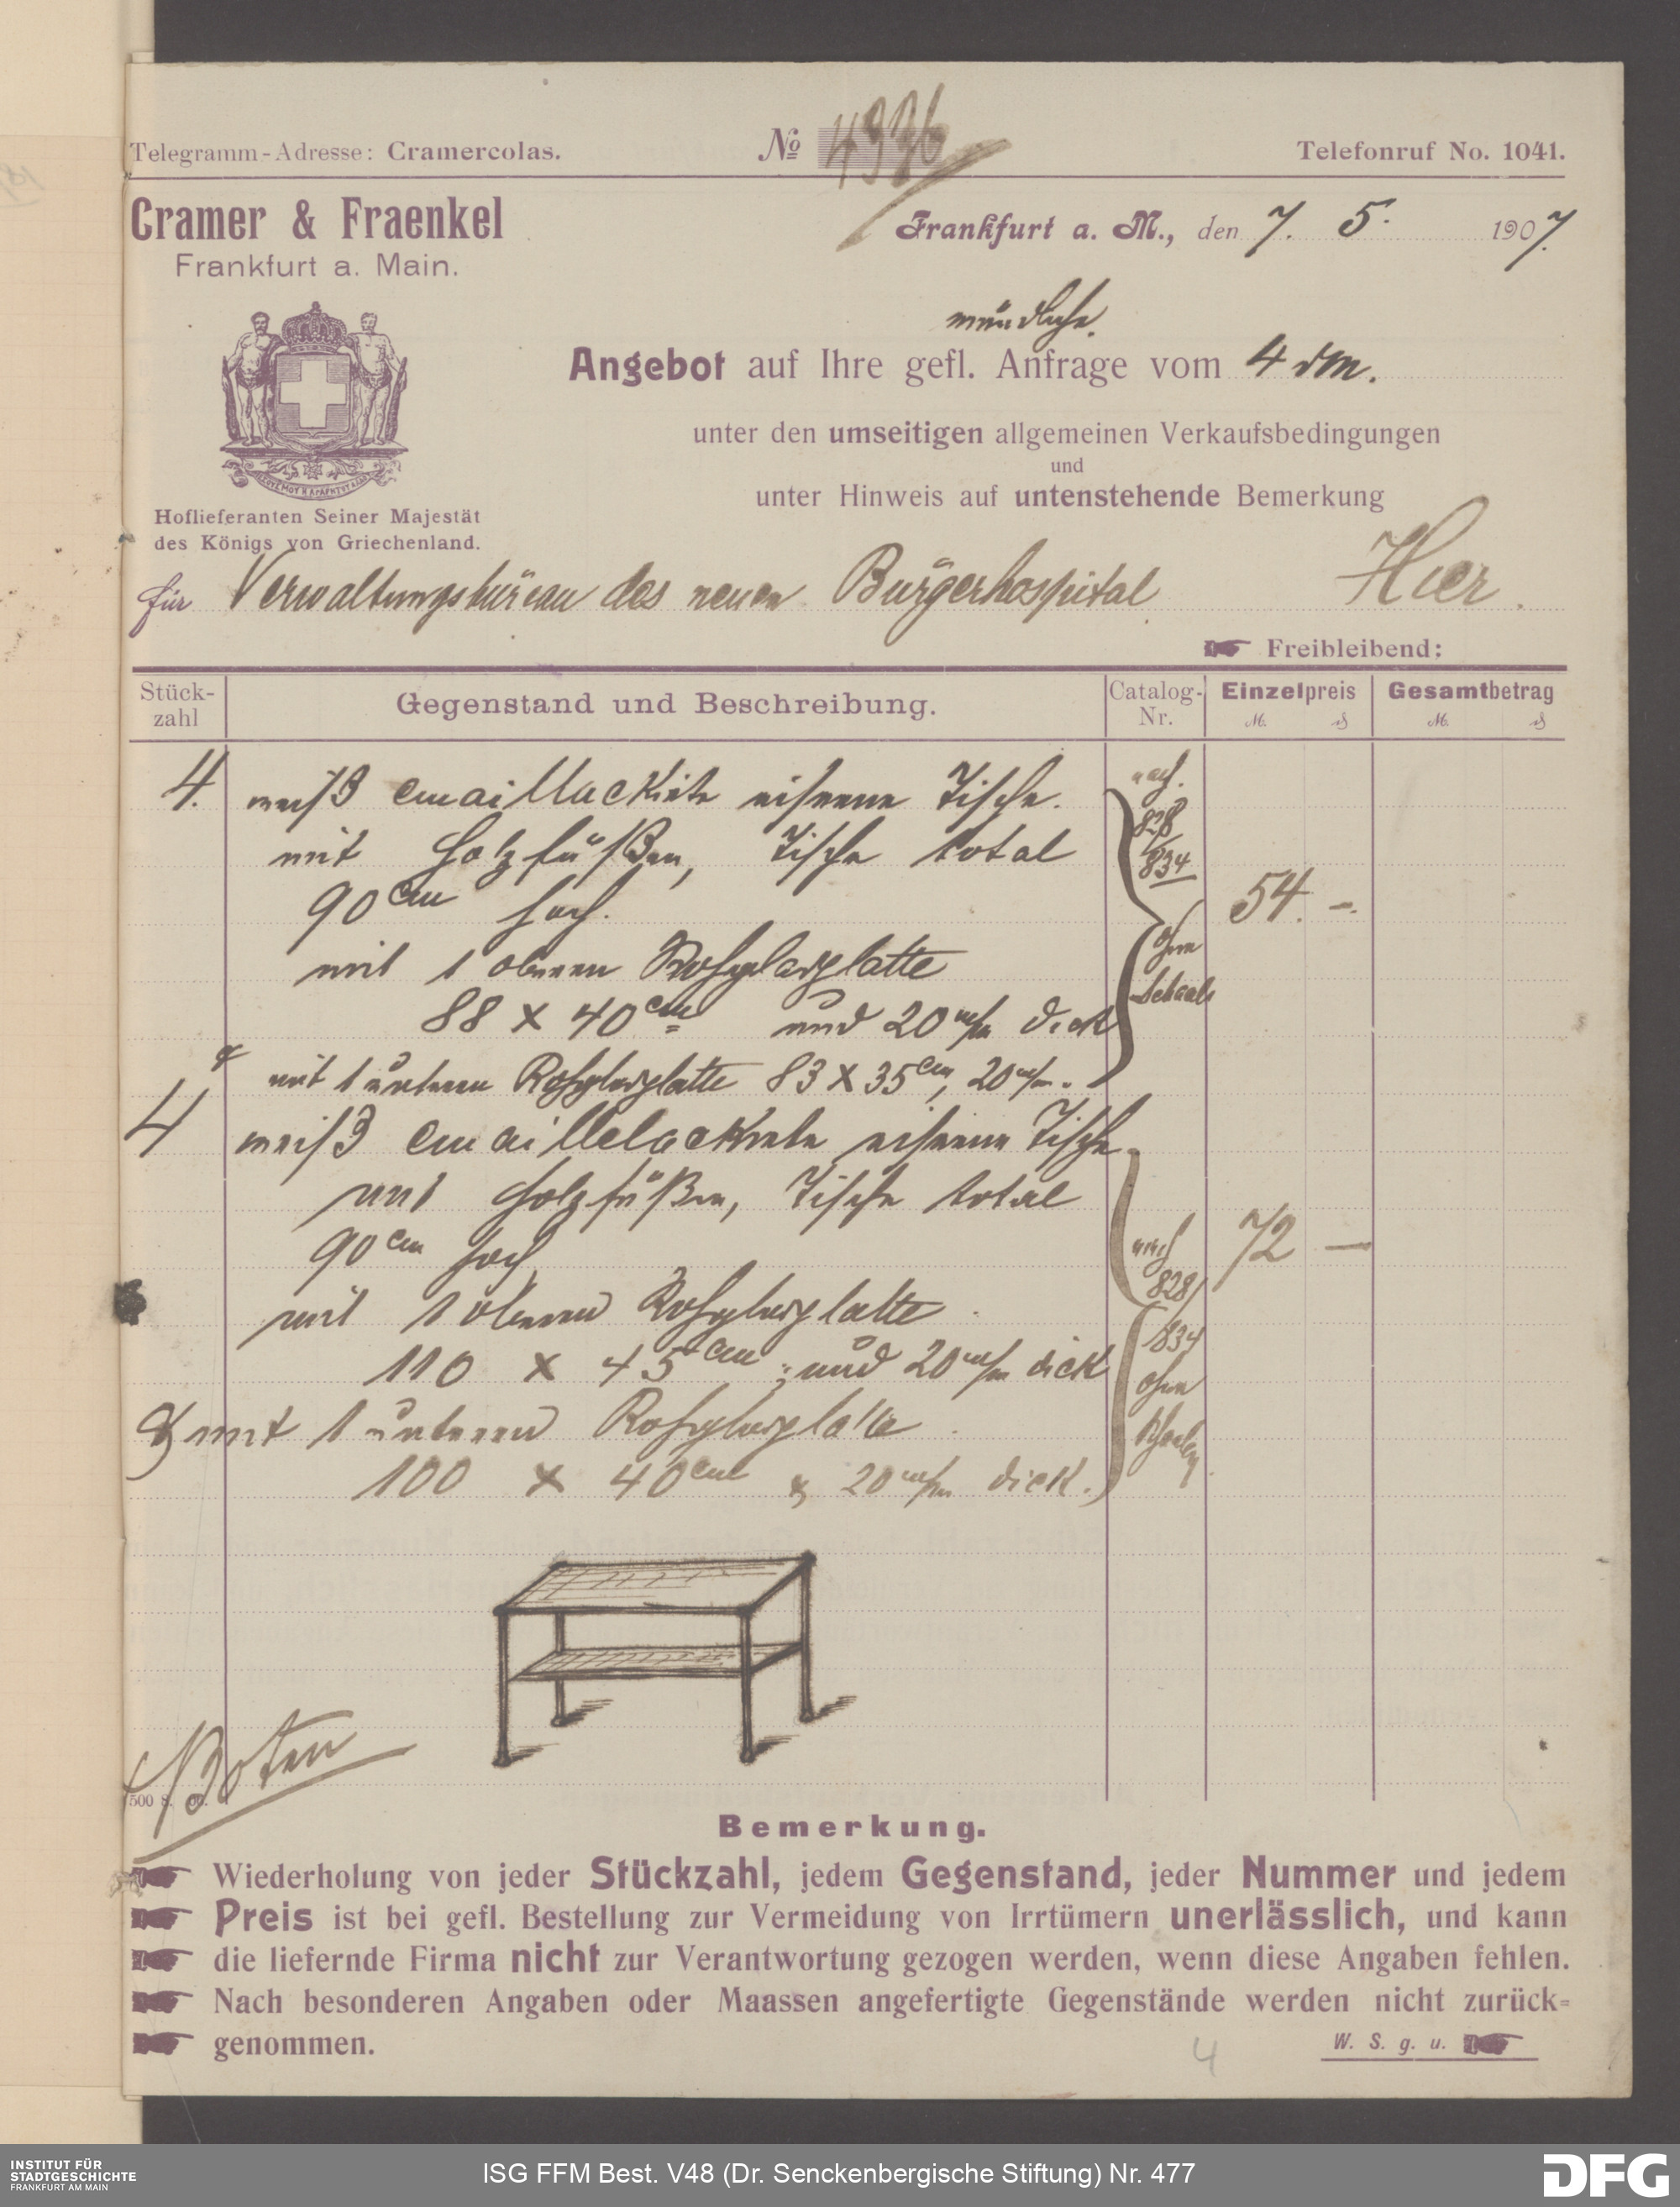 Telegramm-Adresse: Cramercolas.
No 4936
Telefonruf No. 1041.
Cramer & Fraenkel
Frankfurt a. Main.
Frankfurt a. M., den 7. 5. 1907.
mündliche
Angebot auf Ihre gefl. Anfrage vom 4 dM.
unter den umseitigen allgemeinen Verkaufsbedingungen
und
unter Hinweis auf untenstehende Bemerkung
Hoflieferanten Seiner Majestät
des Königs von Griechenland.
für Verwaltungsbüreau des neuen Bürgerhospital Hier.
Freibleibend:
Stück-zahl Gegenstand und Beschreibung. Catalog-Nr. Einzelpreis Gesamtbetrag
M. ₰ M. ₰
4. weiß emaillackirte eiserne Tische. nach.
mit Holzfüßen, Tische total 828/834
90 cm hoch. 54. -.
mit 1 oberen Rohglasplatte ohne
88 x 40 cm und 20 m/m dick Schaale
& mit 1 unteren Rohglasplatte 83 x 35 cm, 20 m/m.
4 weiß emaillelackirte eiserne Tische
mit Holzfüßen, Tische total
90 cm hoch, nach 72 —
mit 1 oberen Rohglasplatte 828/
110 x 45 cm; und 20 m/m dick 834
& mit 1 unteren Rohglasplatte ohne
100 x 40 cm & 20 m/m dick. Schaalen
Boten
500 8. 06.
Bemerkung.
Wiederholung von jeder Stückzahl, jedem Gegenstand, jeder Nummer und jedem
Preis ist bei gefl. Bestellung zur Vermeidung von Irrtümern unerlässlich, und kann
die liefernde Firma nicht zur Verantwortung gezogen werden, wenn diese Angaben fehlen.
Nach besonderen Angaben oder Maassen angefertigte Gegenstände werden nicht zurück-
genommen.
4
W. S. g. u.
INSTITUT FÜR
STADTGESCHICHTE
FRANKFURT AM MAIN
ISG FFM Best. V48 (Dr. Senckenbergische Stiftung) Nr. 477
DFG